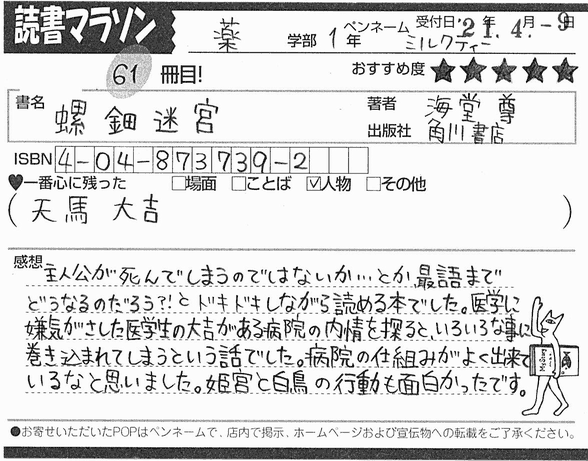 読書マラソン
薬 学部 1年 ペンネーム ミルクティー 受付日'21.年4.月-9日
61 冊目! おすすめ度 ★★★★★
書名 螺鈿迷宮 著者 海堂 尊
出版社 角川書店
ISBN 4-04-873739-2
♥一番心に残った □場面 □ことば ☑人物 □その他
(天馬 大吉)
感想 主人公が死んでしまうのではないか…とか最語まで
どうなるのだろう?!とドキドキしながら読める本でした。医学に
嫌気がさした医学生の大吉がある病院の内情を探ると、いろいろな事に
巻き込まれてしまうという話でした。病院の仕組みがよく出来て
いるなと思いました。姫宮と白鳥の行動も面白かったです。
●お寄せいただいたPOPはペンネームで、店内で掲示、ホームページおよび宣伝物への転載をご了承ください。